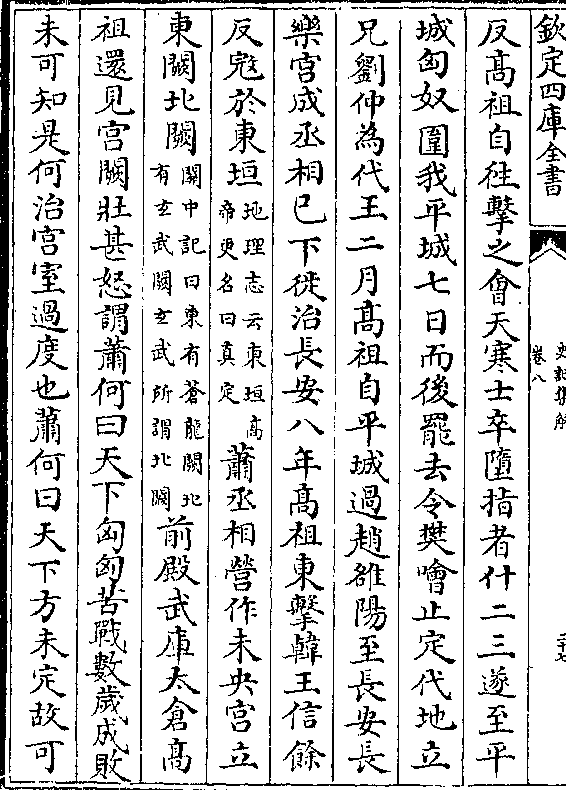 欽定四庫全書
史記集解
卷八
二十七
反髙祖自徃擊之㑹天寒士卒墮指者什二三遂至平
城匈奴圍我平城七日而後罷去令樊噲止定代地立
兄劉仲為代王二月髙祖自平城過趙雒陽至長安長
樂宮成丞相已下徙治長安八年髙祖東擊韓王信餘
反寇於東垣地理志云東垣髙帝更名曰真定蕭丞相營作未央宮立
東闕北闕關中記曰東有蒼龍闕北有玄武闕玄武所謂北闕前殿武庫太倉髙
祖還見宮闕壯甚怒謂蕭何曰天下匈匈苦戰數歲成敗
未可知是何治宮室過度也蕭何曰天下方未定故可